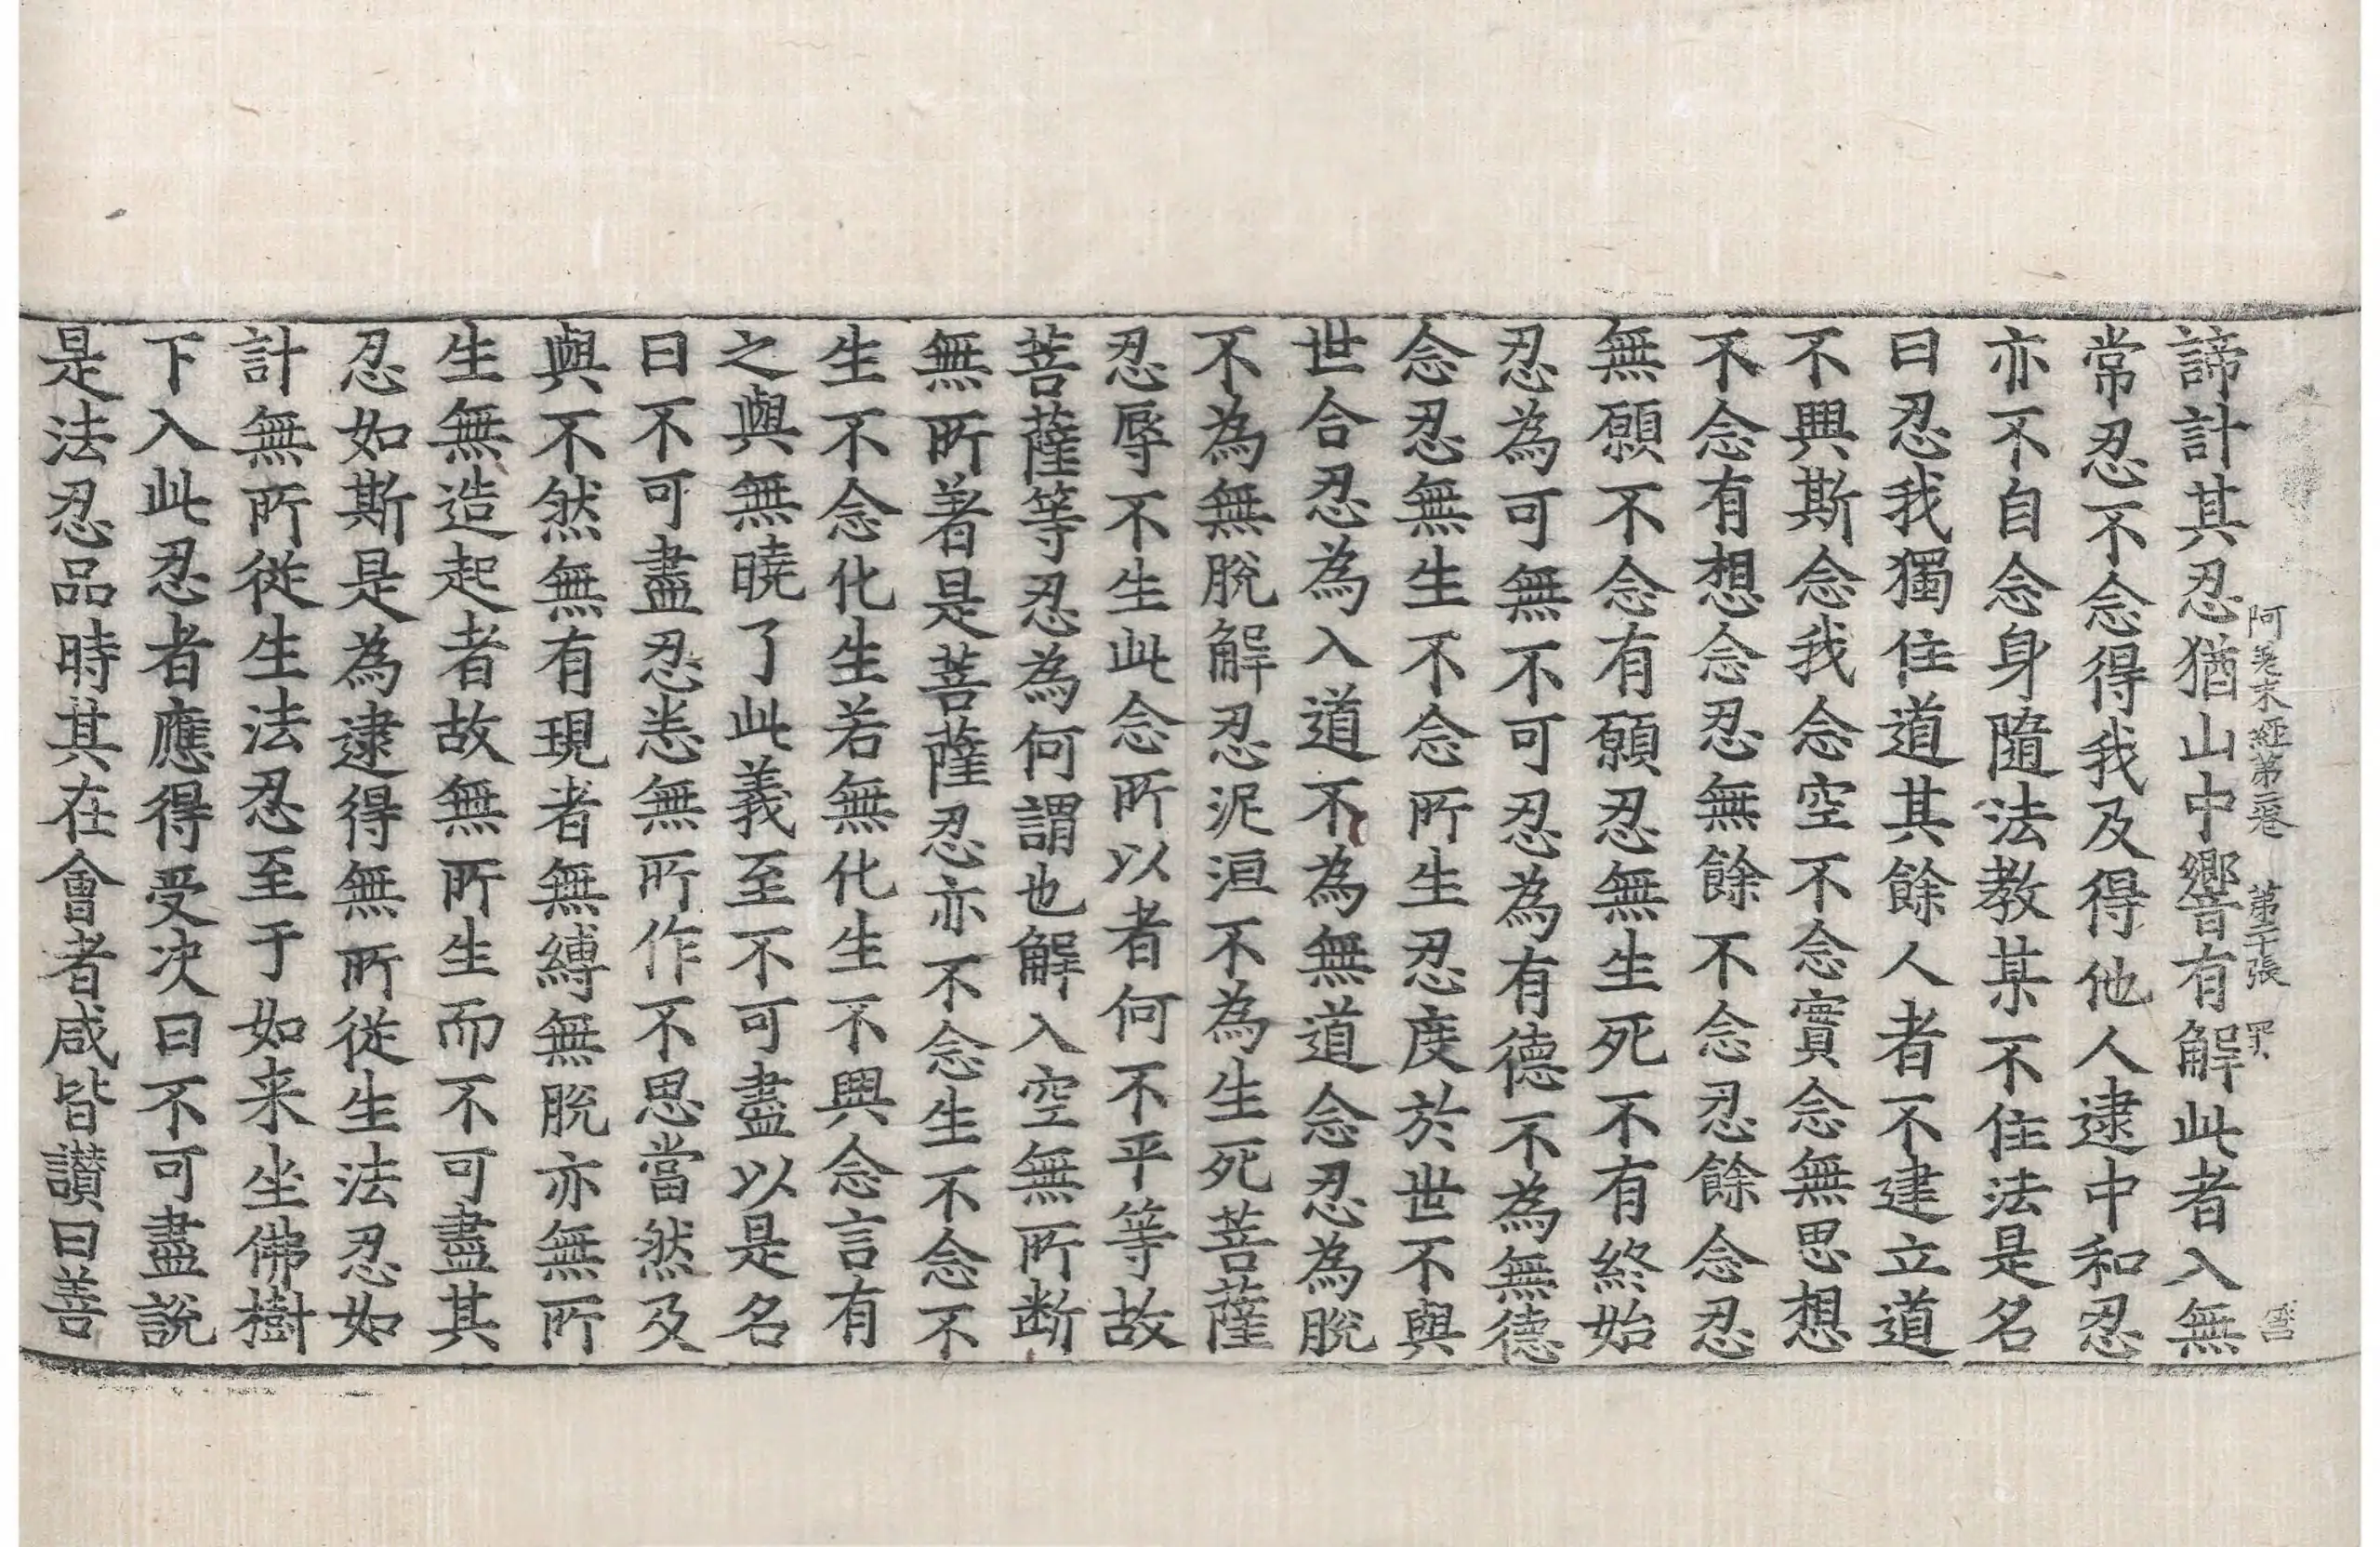 阿差末經第二卷 第二十張 罪
諦計其忍猶山中響有解此者入無
常忍不念得我及得他人逮中和忍
亦不自念身隨法教某不住法是名
曰忍我獨住道其餘人者不建立道
不興斯念我念空不念實念無思想
不念有想念忍無餘不念忍餘念忍
無願不念有願忍無生死不有終始
忍為可無不可忍為有德不為無德
念忍無生不念所生忍度於世不與
世合忍為入道不為無道念忍為脫
不為無脫解忍泥洹不為生死菩薩
忍辱不生此念所以者何不平等故
菩薩等忍為何謂也解入空無所断
無所著是菩薩忍亦不念生不念不
生不念化生若無化生不興念言有
之與無曉了此義至不可盡以是名
曰不可盡忍悉無所作不思當然及
與不然無有現者無縛無脫亦無所
生無造起者故無所生而不可盡其
忍如斯是為逮得無所從生法忍如
計無所從生法忍至于如来坐佛樹
下入此忍者應得受决曰不可盡說
是法忍品時其在會者咸皆讚曰善